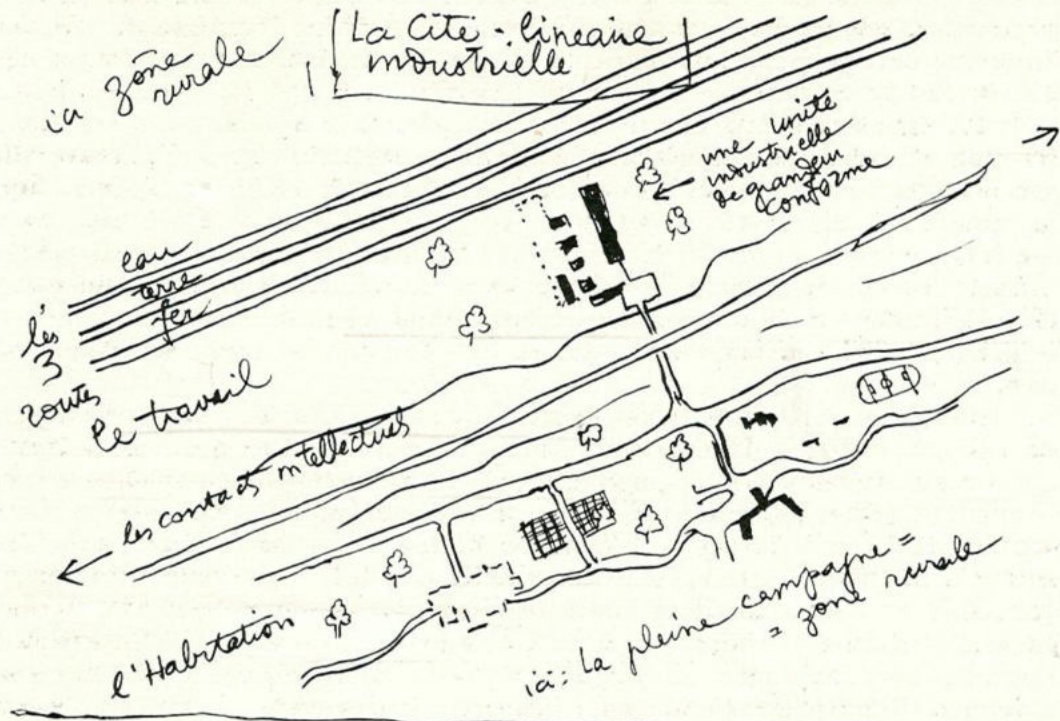 La Cité - linéaire
industrielle
ici zône
rurale
une unité
industrielle
de grandeur
conforme
eau
terre
fer
les
3
routes
le travail
les contacts intellectuels
l'Habitation
ici: La pleine campagne =
= zône rurale